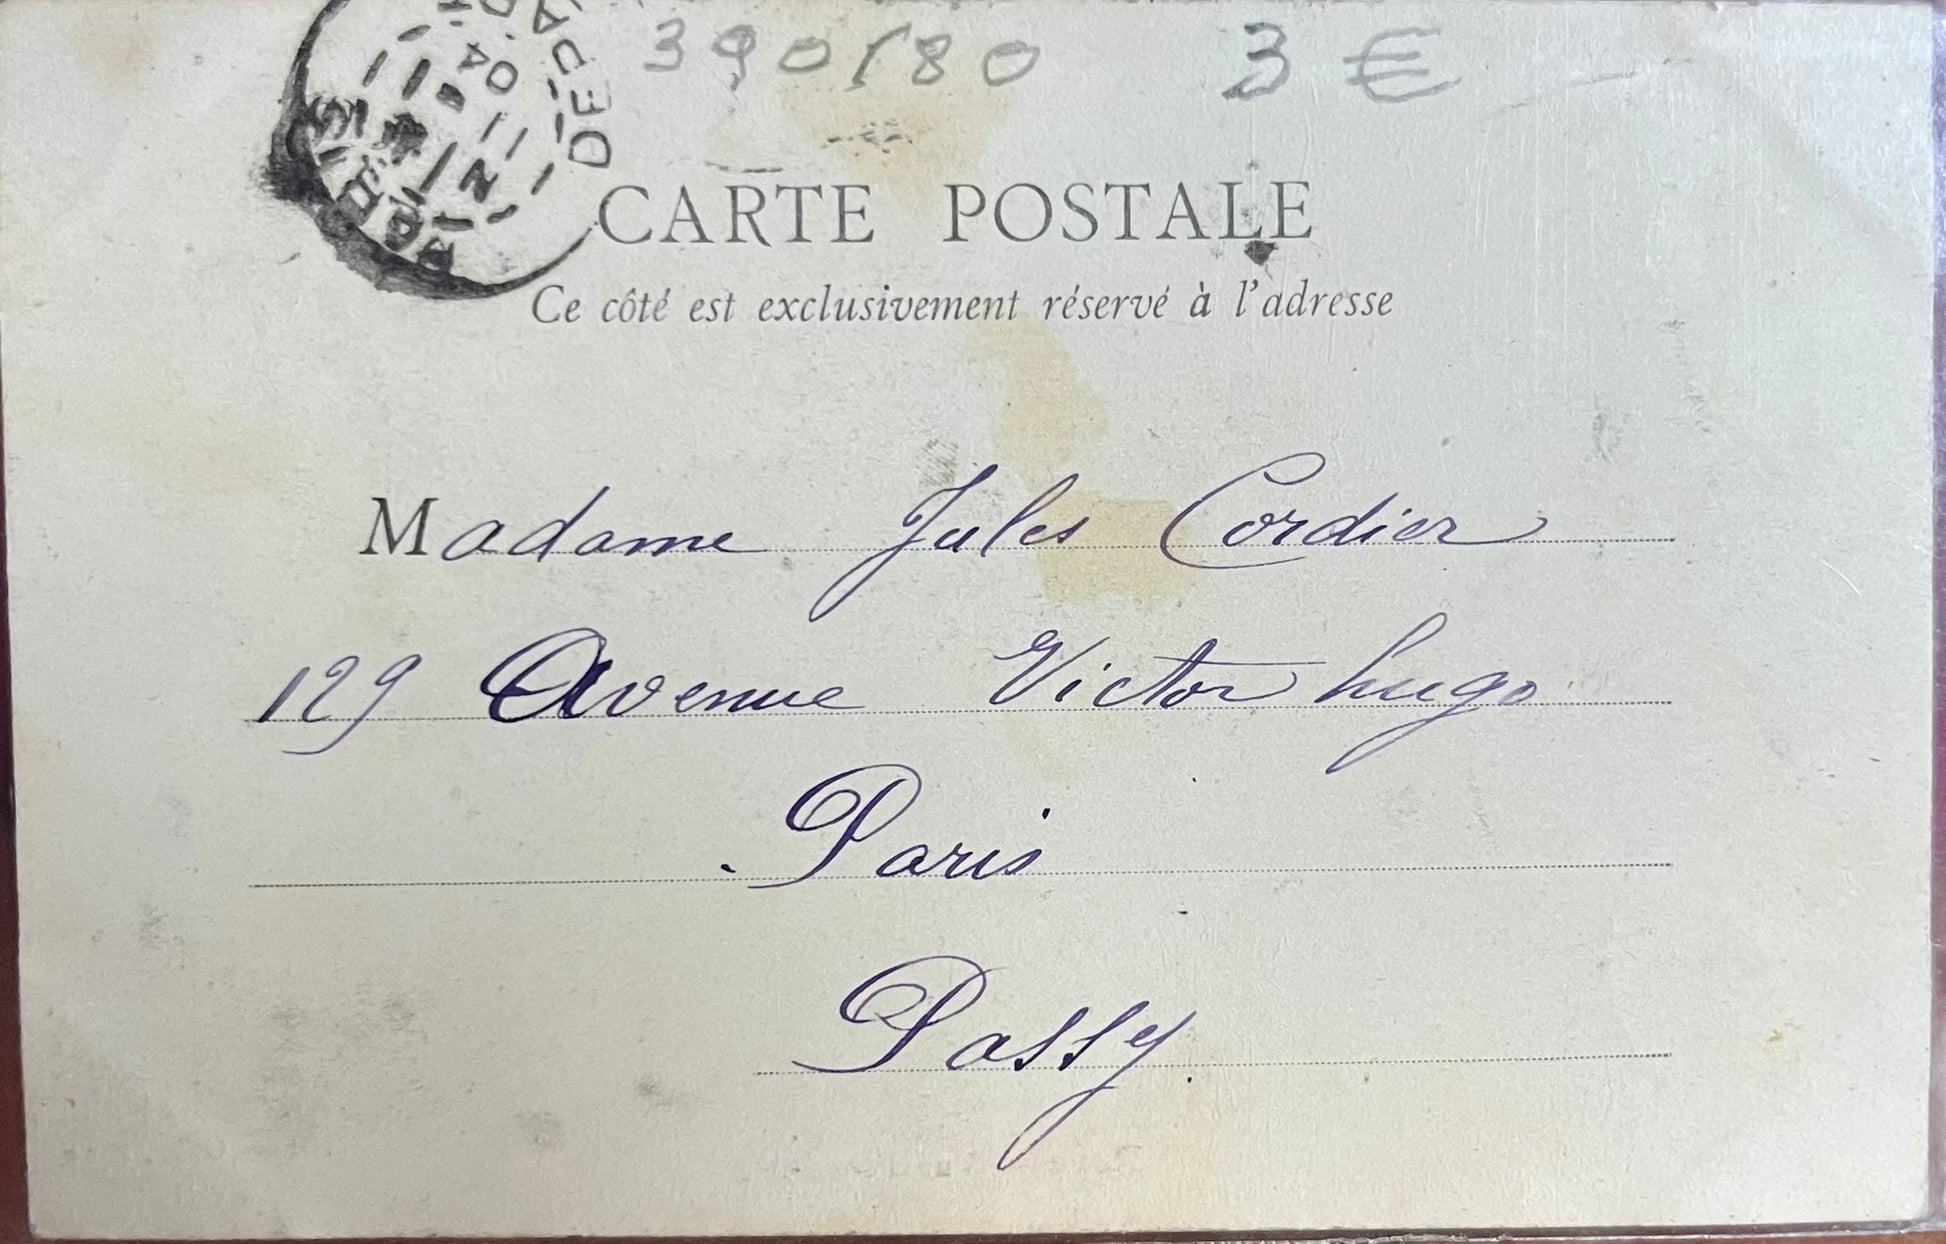 390/80 3 €
04
DEPA
CARTE POSTALE
Ce côté est exclusivement réservé à l'adresse
Madame Jules Cordier
129 Avenue Victor hugo
Paris
Passy.